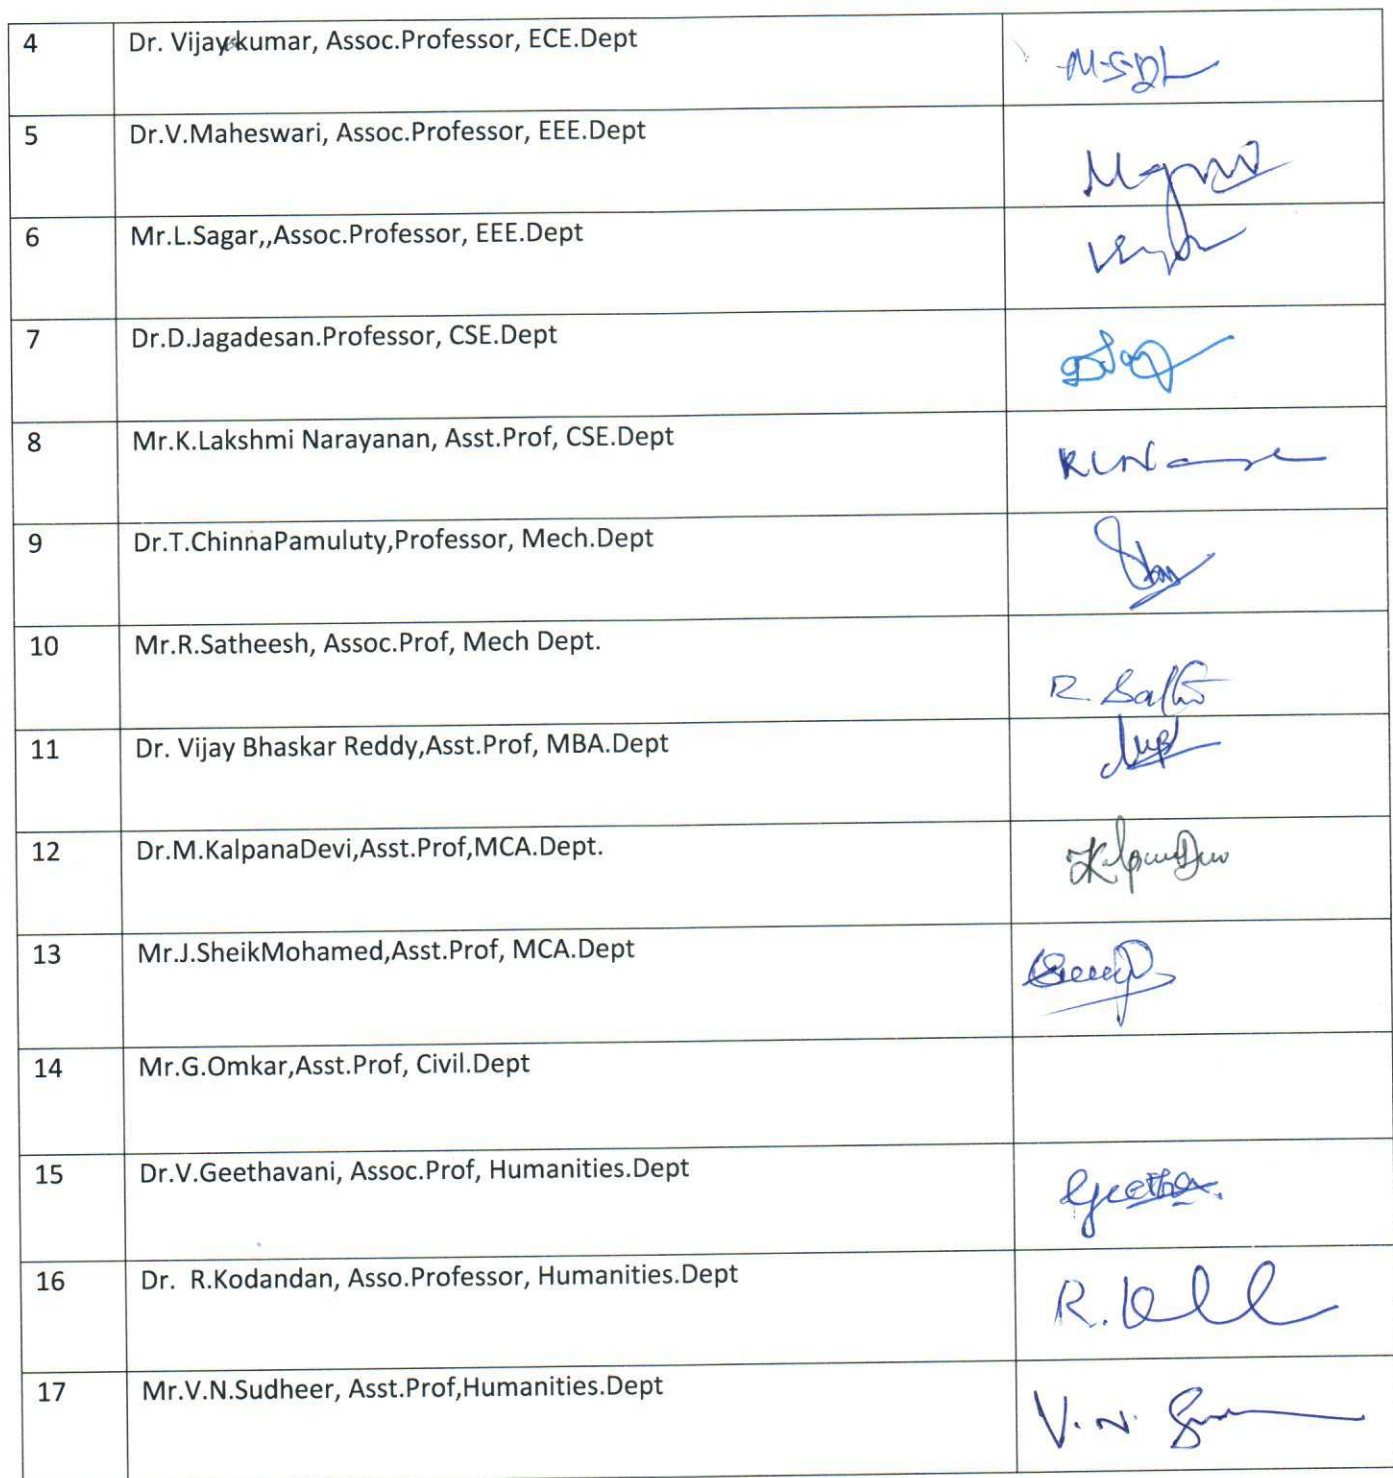 4 Dr. Vijaykumar, Assoc.Professor, ECE.Dept
5 Dr.V.Maheswari, Assoc.Professor, EEE.Dept
6 Mr.L.Sagar,,Assoc.Professor, EEE.Dept
7 Dr.D.Jagadesan.Professor, CSE.Dept
8 Mr.K.Lakshmi Narayanan, Asst.Prof, CSE.Dept
9 Dr.T.ChinnaPamuluty,Professor, Mech.Dept
10 Mr.R.Satheesh, Assoc.Prof, Mech Dept.
11 Dr. Vijay Bhaskar Reddy,Asst.Prof, MBA.Dept
12 Dr.M.KalpanaDevi,Asst.Prof,MCA.Dept.
13 Mr.J.SheikMohamed,Asst.Prof, MCA.Dept
14 Mr.G.Omkar,Asst.Prof, Civil.Dept
15 Dr.V.Geethavani, Assoc.Prof, Humanities.Dept Geetha.
16 Dr. R.Kodandan, Asso.Professor, Humanities.Dept R.
17 Mr.V.N.Sudheer, Asst.Prof,Humanities.Dept V.N.